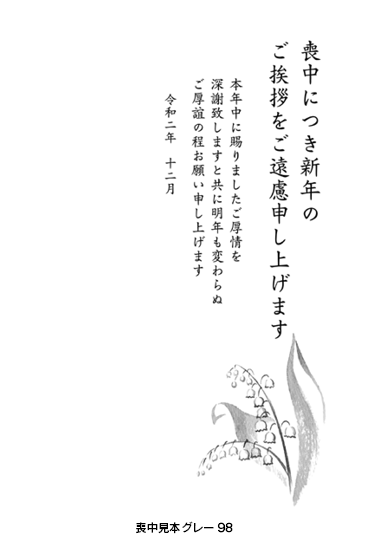 喪中につき新年の
ご挨拶をご遠慮申し上げます
本年中に賜りましたご厚情を
深謝致しますと共に明年も変わらぬ
ご厚誼の程お願い申し上げます
令和二年 十二月
喪中見本グレー 98